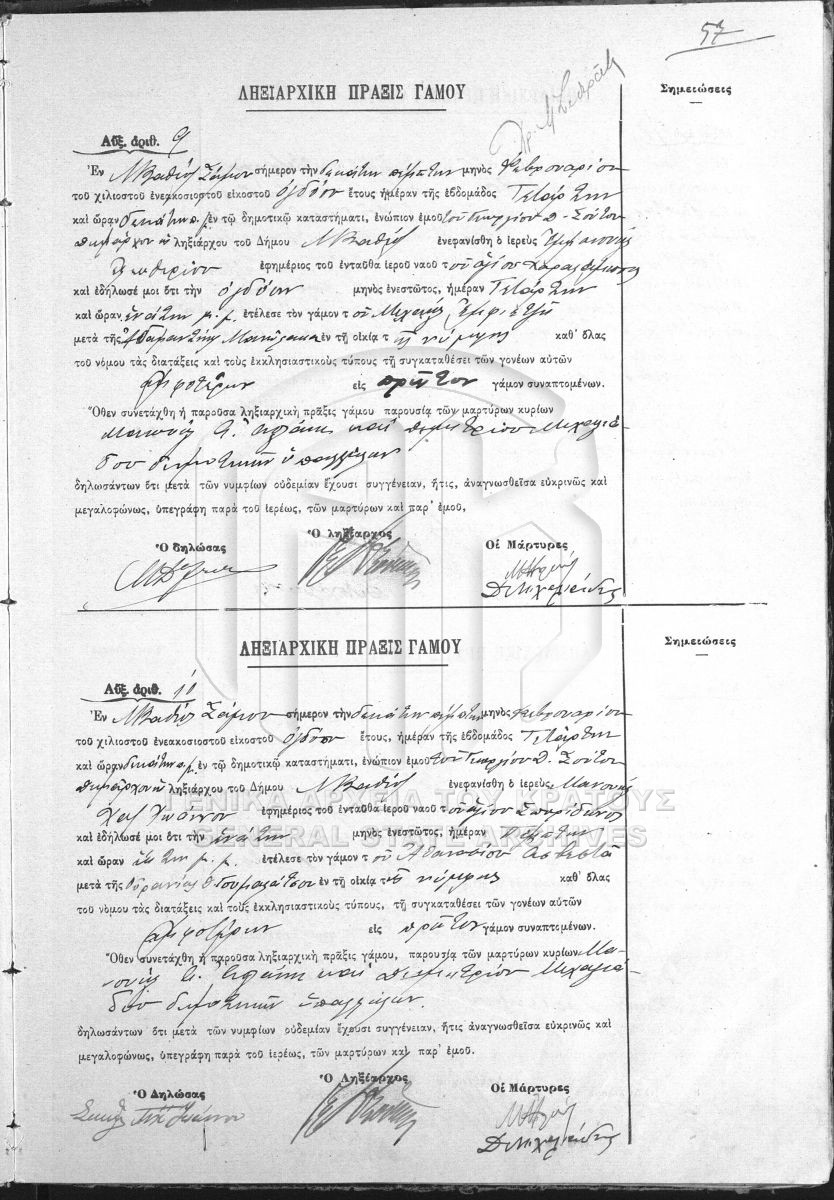 57
ΛΗΞΙΑΡΧΙΚΗ ΠΡΑΞΙΣ ΓΑΜΟΥ
Σημειώσεις
Αὔξ. ἀριθ. 9
Ἐν Λ. Βαθέος Σάμου σήμερον τὴν δεκάτην πέμπτην μηνὸς Φεβρουαρίου
τοῦ χιλιοστοῦ ἐνεακοσιοστοῦ εἰκοστοῦ ὀγδόου ἔτους ἡμέραν τῆς ἑβδομάδος Τετάρτην
καὶ ὥραν δεκάτην π.μ. ἐν τῷ δημοτικῷ καταστήματι, ἐνώπιον ἐμοῦ τοῦ Γεωργίου Δ. Σούτου
δημάρχου ὡς ληξιάρχου τοῦ Δήμου Λ. Βαθέος ἐνεφανίσθη ὁ ἱερεὺς Ἐμμανουὴλ
ἐφημέριος τοῦ ἐνταῦθα ἱεροῦ ναοῦ τοῦ ἁγίου Χαραλάμπους
καὶ ἐδήλωσέ μοι ὅτι τὴν ὀγδόην μηνὸς ἐνεστῶτος, ἡμέραν Τετάρτην
καὶ ὥραν ἐνάτην μ.μ. ἐτέλεσε τὸν γάμον τοῦ Μιχαὴλ Ἐμμ.
μετὰ τῆς Ἀδαμαντίας ἐν τῇ οἰκίᾳ τῆς νύμφης καθ' ὅλας
τοῦ νόμου τὰς διατάξεις καὶ τοὺς ἐκκλησιαστικοὺς τύπους τῇ συγκαταθέσει τῶν γονέων αὐτῶν
ἀμφοτέρων εἰς πρῶτον γάμον συναπτομένων.
Ὅθεν συνετάχθη ἡ παροῦσα ληξιαρχικὴ πρᾶξις γάμου παρουσίᾳ τῶν μαρτύρων κυρίων
Μανουὴλ Γ. καὶ Δημητρίου Μιχαλιά-
δου δημοτικῶν ὑπαλλήλων
δηλωσάντων ὅτι μετὰ τῶν νυμφίων οὐδεμίαν ἔχουσι συγγένειαν, ἥτις, ἀναγνωσθεῖσα εὐκρινῶς καὶ
μεγαλοφώνως, ὑπεγράφη παρὰ τοῦ ἱερέως, τῶν μαρτύρων καὶ παρ' ἐμοῦ,
Ὁ δηλώσας
Ὁ ληξίαρχος
Οἱ Μάρτυρες
Δ Μιχαλιάδης
ΛΗΞΙΑΡΧΙΚΗ ΠΡΑΞΙΣ ΓΑΜΟΥ
Σημειώσεις
Αὔξ. ἀριθ. 10
Ἐν Λ. Βαθέος Σάμου σήμερον τὴν δεκάτην πέμπτην μηνὸς Φεβρουαρίου
τοῦ χιλιοστοῦ ἐνεακοσιοστοῦ εἰκοστοῦ ὀγδόου ἔτους, ἡμέραν τῆς ἑβδομάδος Τετάρτην
καὶ ὥραν δεκάτην π.μ. ἐν τῷ δημοτικῷ καταστήματι, ἐνώπιον ἐμοῦ τοῦ Γεωργίου Δ. Σούτου
δημάρχου ὡς ληξιάρχου τοῦ Δήμου Λ. Βαθέος ἐνεφανίσθη ὁ ἱερεὺς Μανουὴλ
Χατζ Ἰωάννου ἐφημέριος τοῦ ἐνταῦθα ἱεροῦ ναοῦ τοῦ ἁγίου Σπυρίδωνος
ΓΕΝΙΚΑ ΑΡΧΕΙΑ ΤΟΥ ΚΡΑΤΟΥΣ
GENERAL STATE ARCHIVES
καὶ ἐδήλωσέ μοι ὅτι τὴν ἐνάτην μηνὸς ἐνεστῶτος, ἡμέραν Πέμπτην
καὶ ὥραν ἕκτην μ.μ. ἐτέλεσε τὸν γάμον τοῦ Ἀθανασίου Ἀσβεστᾶ
μετὰ τῆς Οὐρανίας ἐν τῇ οἰκίᾳ τῆς νύμφης καθ' ὅλας
τοῦ νόμου τὰς διατάξεις καὶ τοὺς ἐκκλησιαστικοὺς τύπους, τῇ συγκαταθέσει τῶν γονέων αὐτῶν
ἀμφοτέρων εἰς πρῶτον γάμον συναπτομένων.
Ὅθεν συνετάχθη ἡ παροῦσα ληξιαρχικὴ πρᾶξις γάμου, παρουσίᾳ τῶν μαρτύρων κυρίων Μα-
νουὴλ Γ. καὶ Δημητρίου Μιχαλιά-
δου δημοτικῶν ὑπαλλήλων.
δηλωσάντων ὅτι μετὰ τῶν νυμφίων οὐδεμίαν ἔχουσι συγγένειαν, ἥτις ἀναγνωσθεῖσα εὐκρινῶς καὶ
μεγαλοφώνως, ὑπεγράφη παρὰ τοῦ ἱερέως, τῶν μαρτύρων καὶ παρ' ἐμοῦ.
Ὁ Δηλώσας
Ὁ Ληξίαρχος
Οἱ Μάρτυρες
Δ Μιχαλιάδης